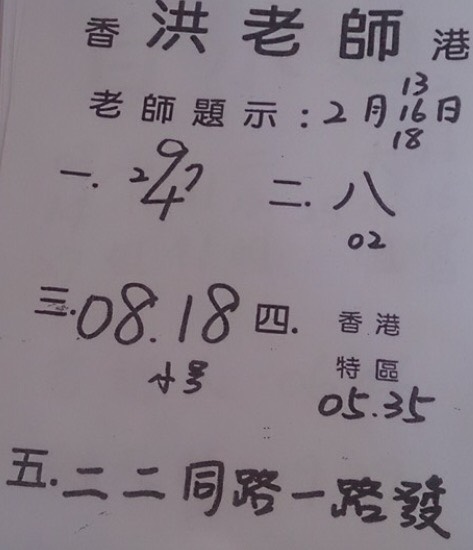 香 洪老師 港
13
老師題示：2月16日
18
一. 2 9 7 二. 八
4
02
三. 08.18 四. 香港
小号 特區
05.35
五. 二二同路一路發